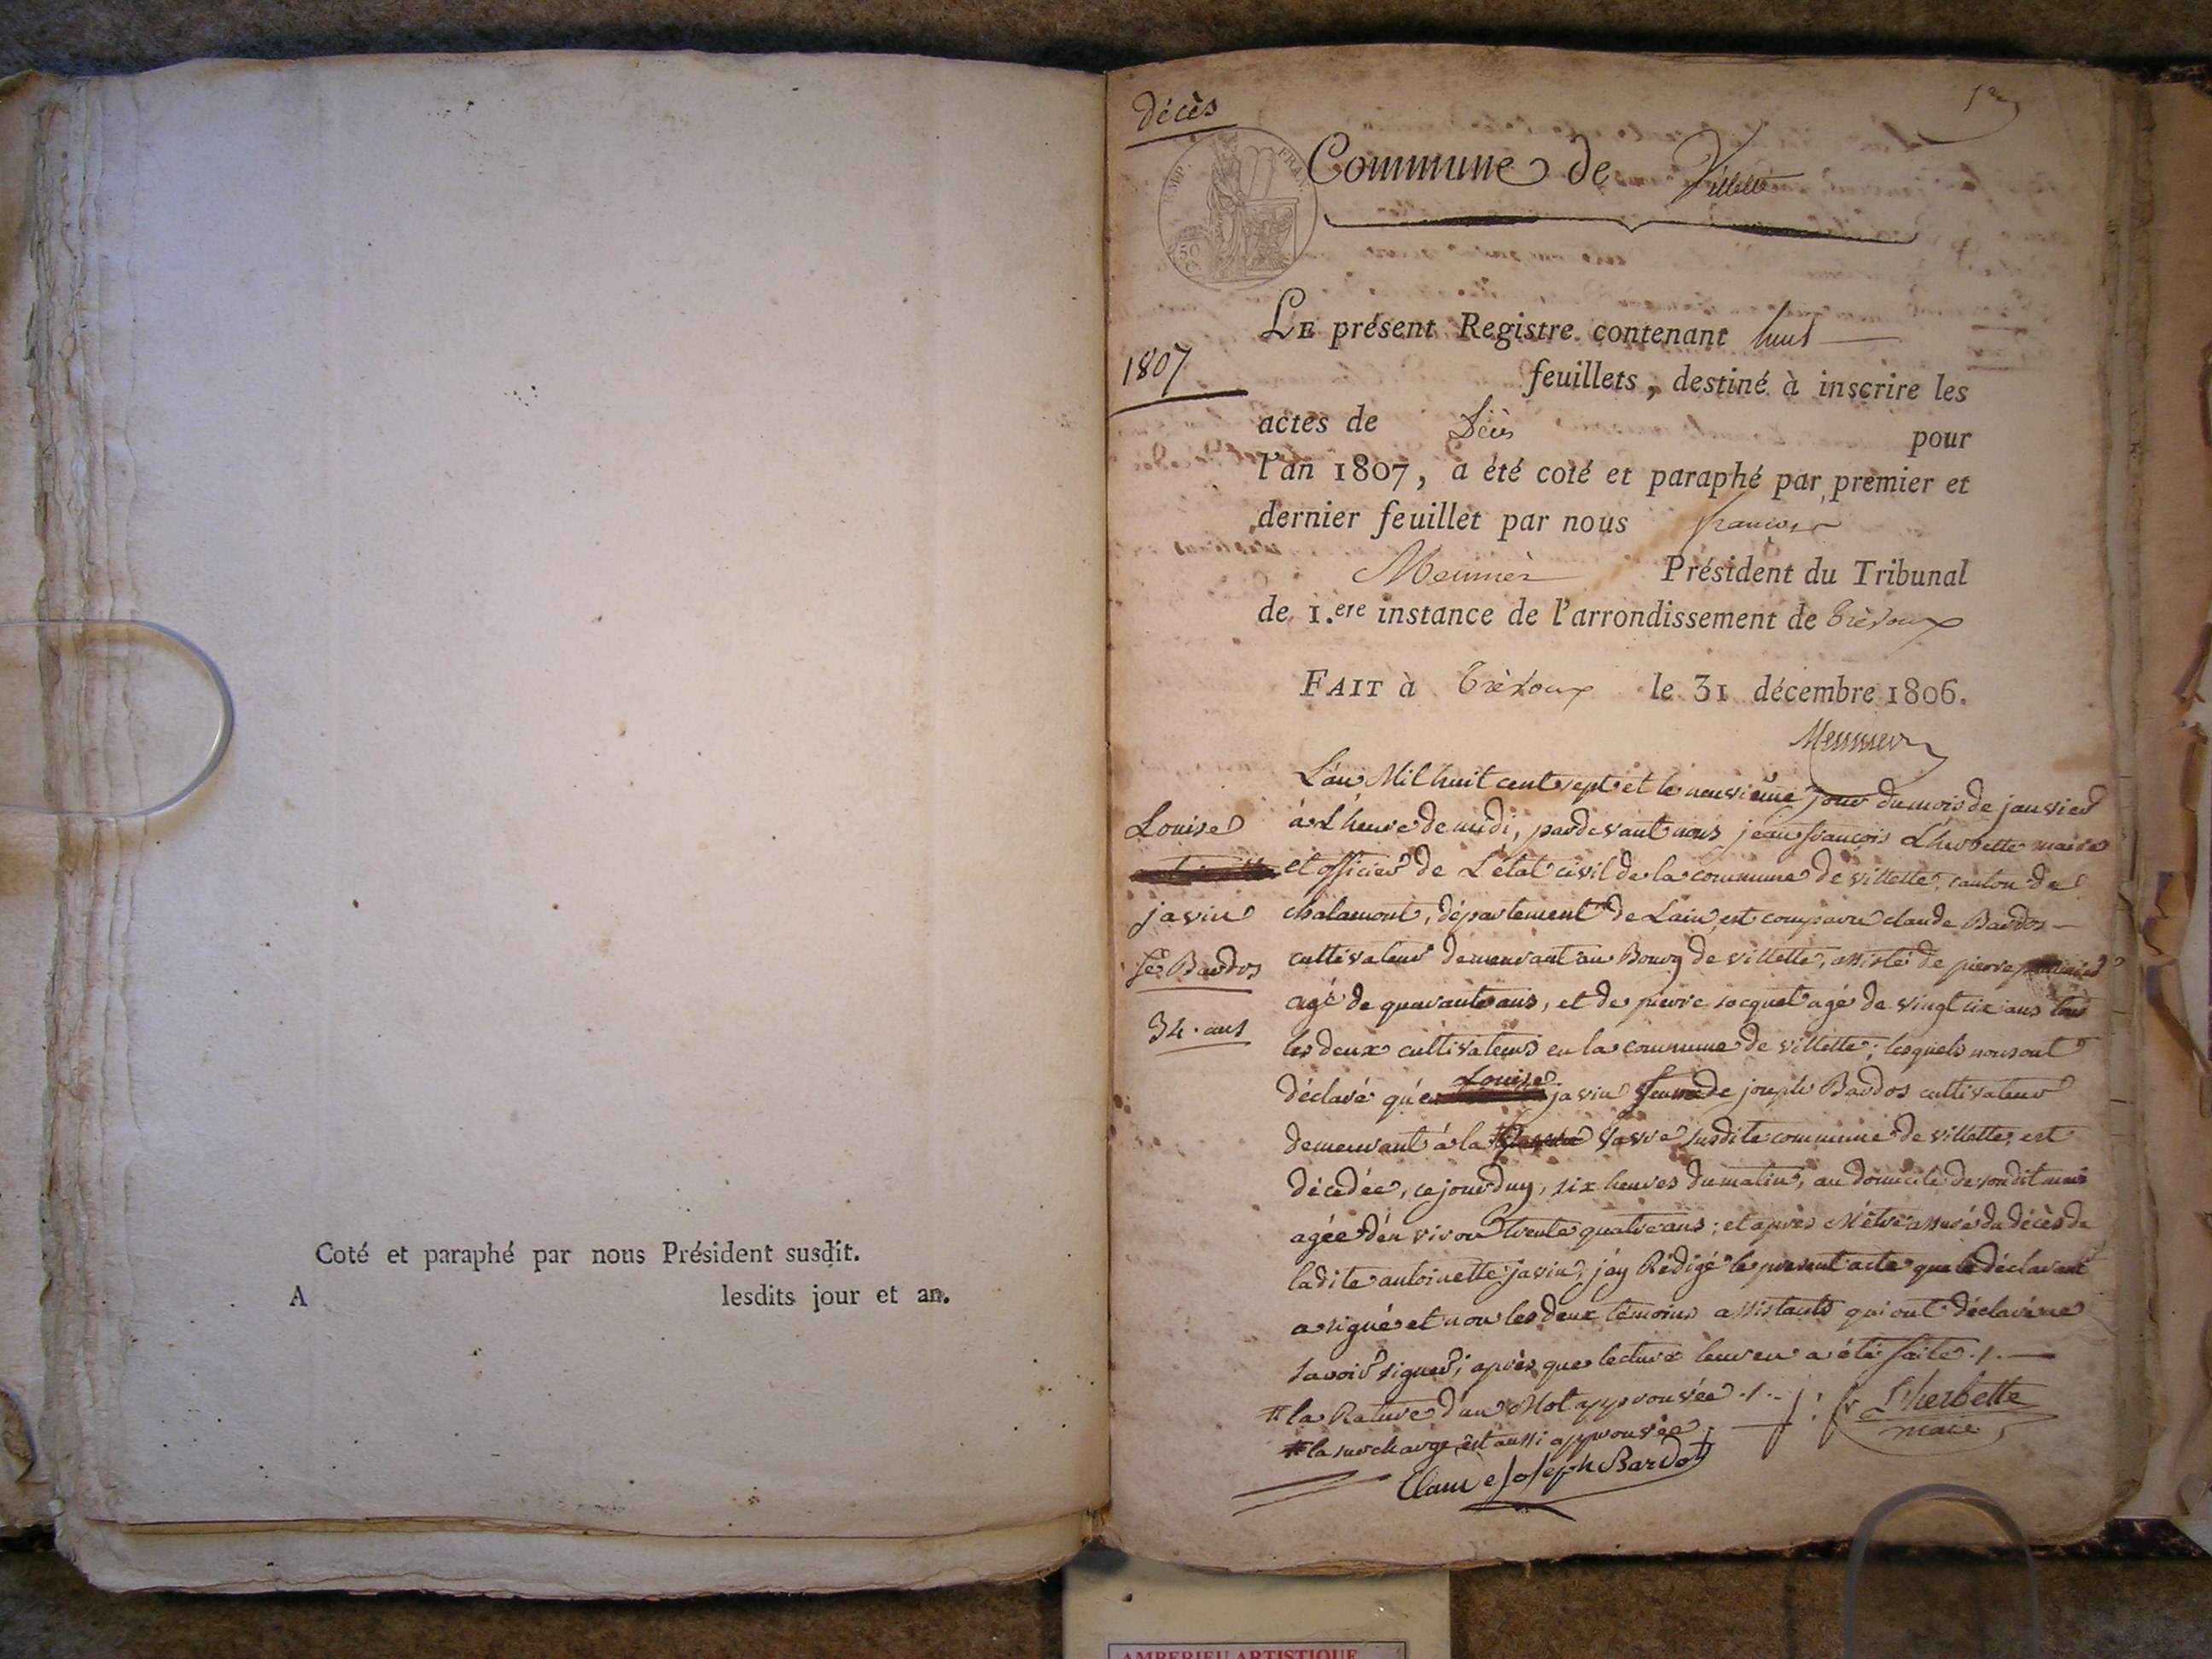 Coté et paraphé par nous Président susdit.
A lesdits jour et an.
décès
1er
EMP. FRAN.
50 C.
Commune de Villette
LE présent Registre contenant huit
1807
feuillets, destiné à inscrire les
actes de Décès pour
l'an 1807, a été coté et paraphé par premier et
dernier feuillet par nous françois
Meunier Président du Tribunal
de 1.ere instance de l'arrondissement de Trévoux
FAIT à Trévoux le 31 décembre 1806.
Meunier
Louise
javin
fe Bardos
34. ans
L'an Mil huit cent sept et le neuvième jour du mois de janvier
à L'heure de midi, pardevant nous jean françois Lherbette maire
et officier de L'état civil de la commune de villette, canton de
chalamont, département de Lain, est comparu claude Bardos
cultivateur demeurant au Bourg de villette, assisté de pierre
agé de quarante ans, et de pierre socquet agé de vingt six ans tous
les deux cultivateurs en la commune de villette; lesquels nous ont
déclaré que Louise javin femme de joseph Bardos cultivateur
demeurant à la susdite commune de villette, est
décédée, ce jourduy, six heures du matin, au domicile de son dit mari
agée d'en viron trente quatre ans; et après M'être assuré du décès de
ladite antoinette javin, j'ay Rédigé le present acte que le déclarant
a signé et non les deux témoins assistants qui ont déclaré ne
savoir signer, après que lecture leur en a été faite ./. —
# la Rature d'un Mot approuvée ./. j: fr Lherbette
maire
# la surcharge est aussi approuvée
Claude Joseph Bardot
AMBERIEU ARTISTIQUE